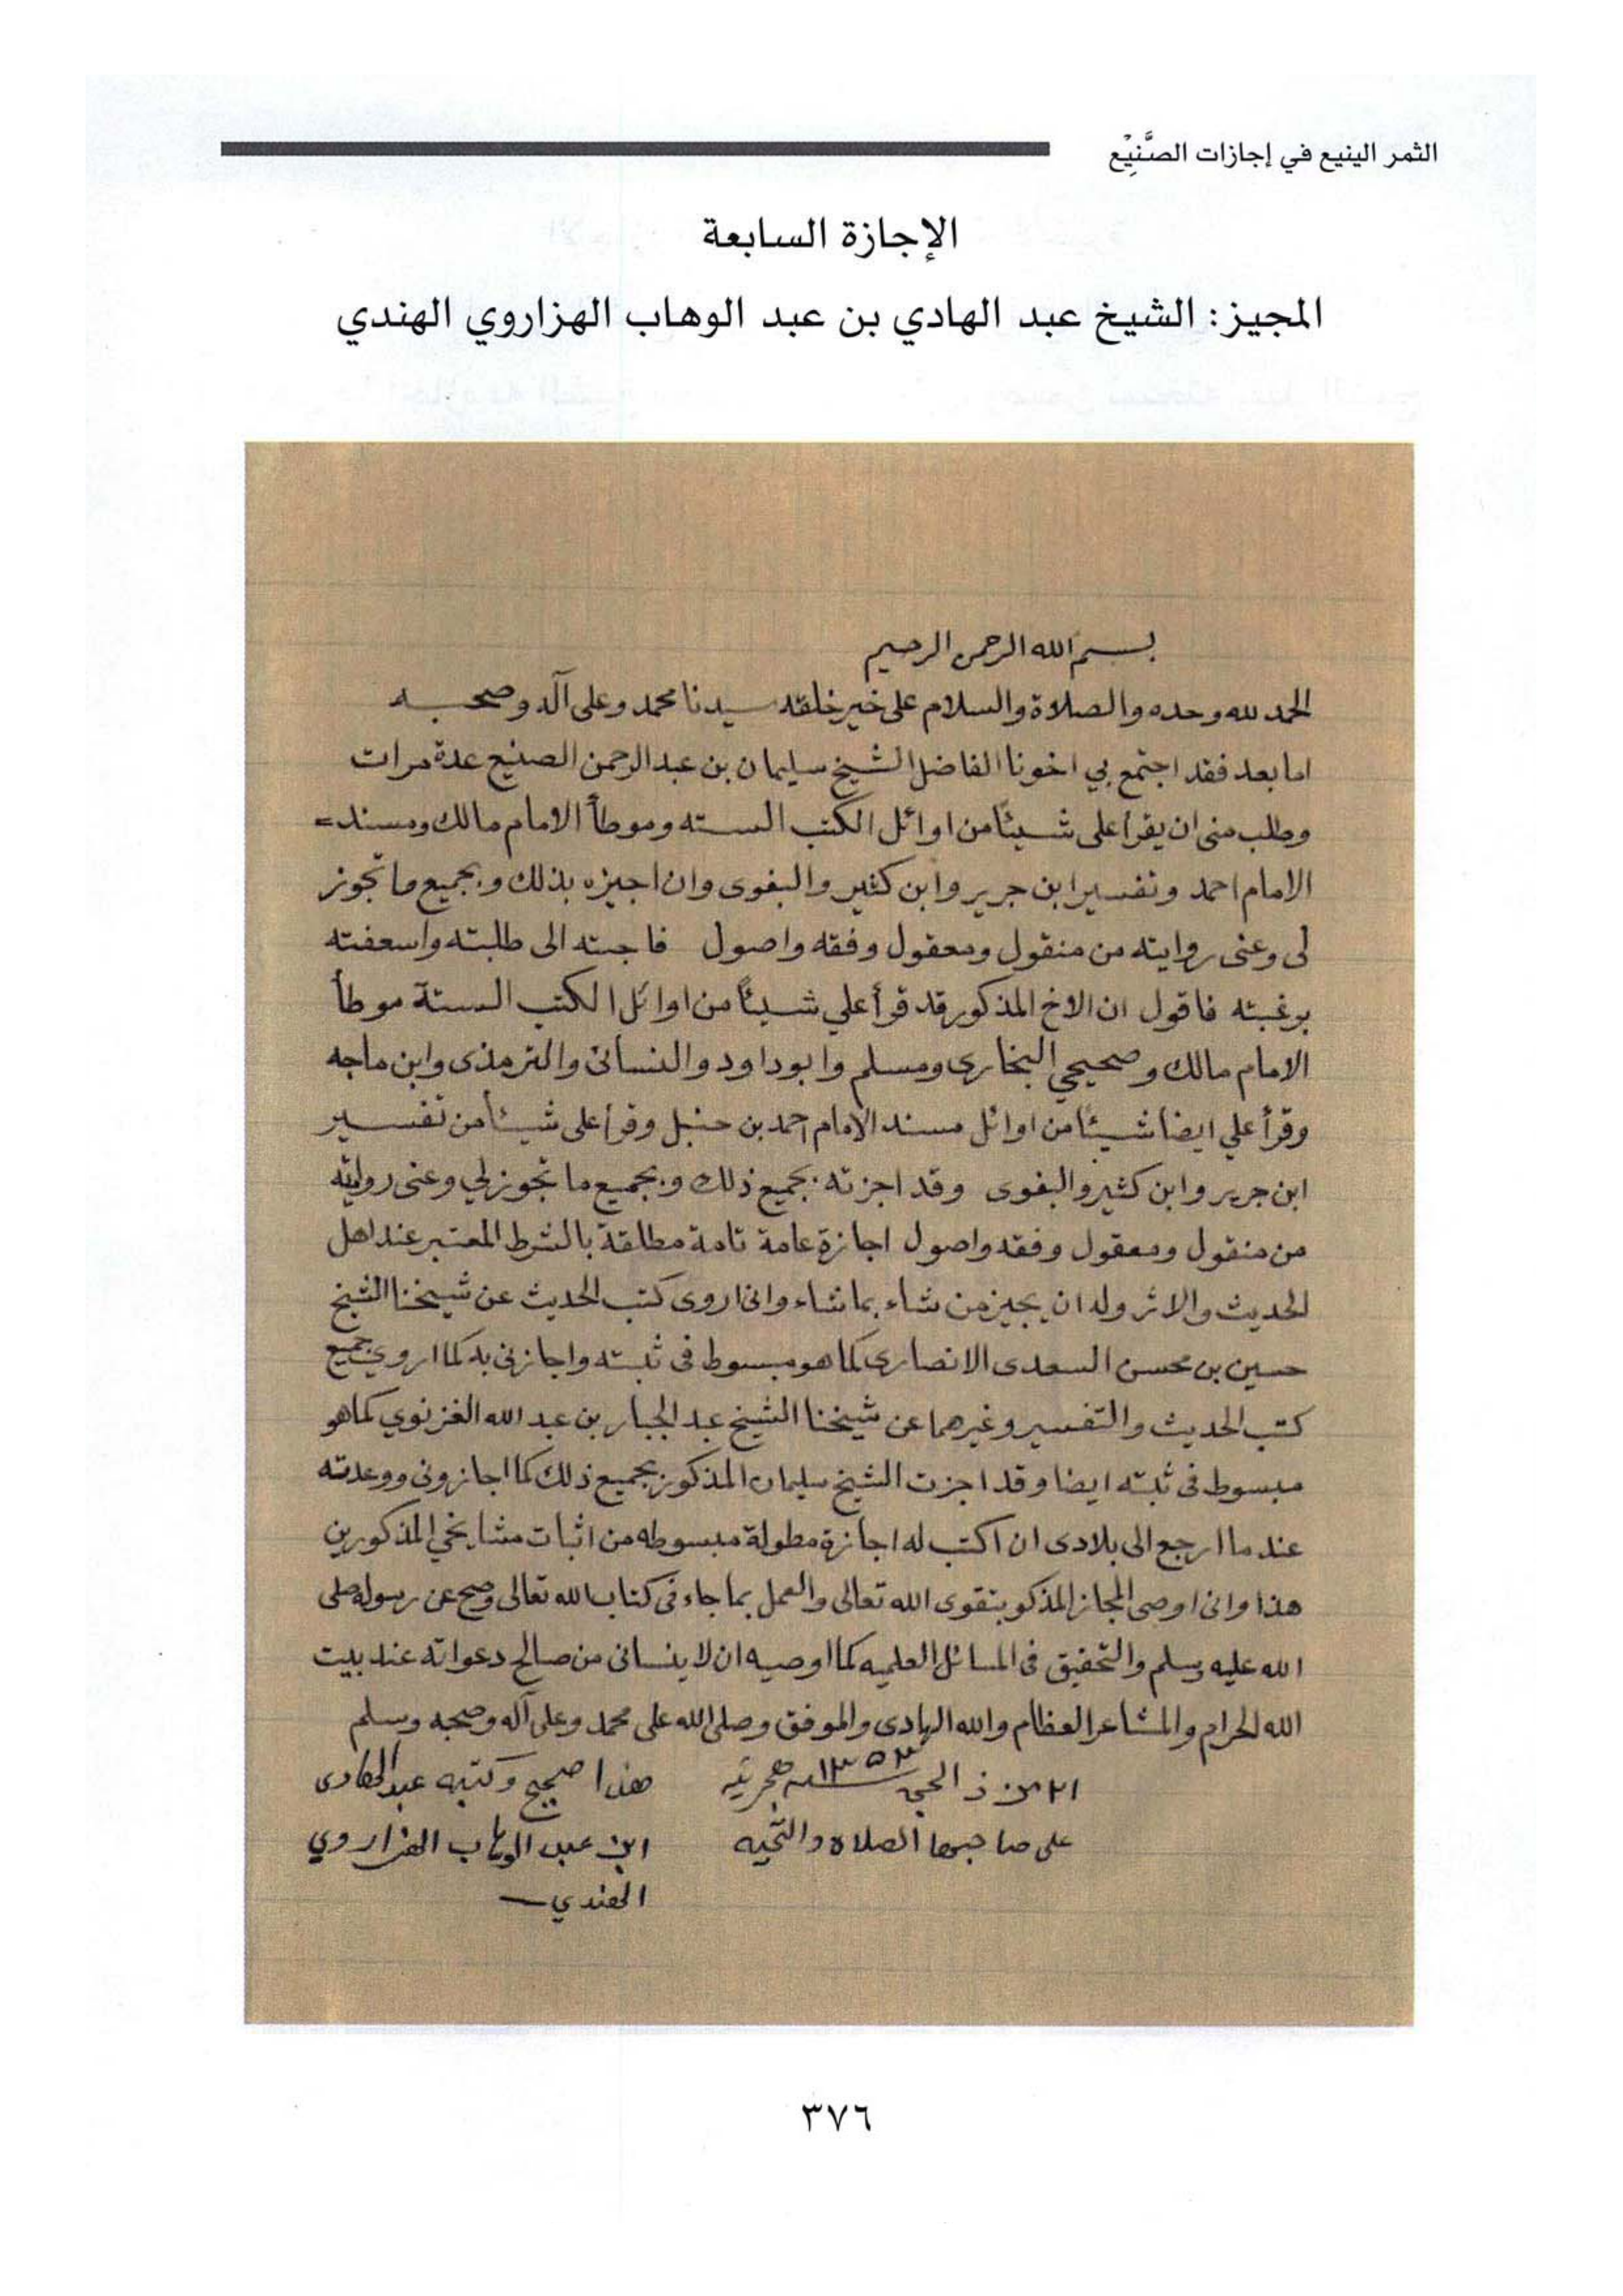 الثمر الينيع في إجازات الصَّنِيْع
الإجازة السابعة
المجيز: الشيخ عبد الهادي بن عبد الوهاب الهزاروي الهندي
بسم الله الرحمن الرحيم
الحمد لله وحده والصلاة والسلام على خير خلقه سيدنا محمد وعلى آله وصحبه
اما بعد فقد اجتمع بي اخونا الفاضل الشيخ سليمان بن عبد الرحمن الصنيع عدة مرات
وطلب منى ان يقرأ على شيئًا من اوائل الكتب السته وموطأ الامام مالك ومسند =
الامام احمد وتفسير ابن جرير وابن كثير والبغوى وان اجيزه بذلك وبجميع ما تجوز
لى وعنى روايته من منقول ومعقول وفقه واصول فاجبته الى طلبته واسعفته
برغبته فاقول ان الاخ المذكور قد قرأ علي شيئًا من اوائل الكتب الستة موطأ
الامام مالك وصحيحي البخارى ومسلم وابو داود والنسائى والترمذى وابن ماجه
وقرأ علي ايضا شيئًا من اوائل مسند الامام احمد بن حنبل وقرأ على شيئًا من تفسير
ابن جرير وابن كثير والبغوى وقد اجزته بجميع ذلك وبجميع ما تجوز لي وعنى روايته
من منقول ومعقول وفقه واصول اجازة عامة تامة مطلقة بالشرط المعتبر عند اهل
الحديث والاثر وله ان يجيز من شاء بما شاء وانى اروى كتب الحديث عن شيخنا الشيخ
حسين بن محسن السعدى الانصارى كما هو مبسوط فى ثبته واجازنى به كما اروي جميع
كتب الحديث والتفسير وغيرهما عن شيخنا الشيخ عبد الجبار بن عبد الله الغزنوي كما هو
مبسوط فى ثبته ايضا وقد اجزت الشيخ سليمان المذكور بجميع ذلك كما اجازونى ووعدته
عند ما ارجع الى بلادى ان اكتب له اجازة مطولة مبسوطه من اثبات مشايخي المذكورين
هذا وانى اوصى المجاز المذكور بتقوى الله تعالى والعمل بما جاء فى كتاب الله تعالى وصح عن رسوله صلى
الله عليه وسلم والتحقيق فى المسائل العلميه كما اوصيه ان لا ينسانى من صالح دعواته عند بيت
الله الحرام والمشاعر العظام والله الهادى والموفق وصلى الله على محمد وعلى آله وصحبه وسلم
من ذ الحجى ١٣٥٣ هجريه
هذا صحيح وكتبه عبد الهادى
على صاحبها الصلاة والتحيه
ابن عبد الوهاب الهزاروي
الهندي
٣٧٦